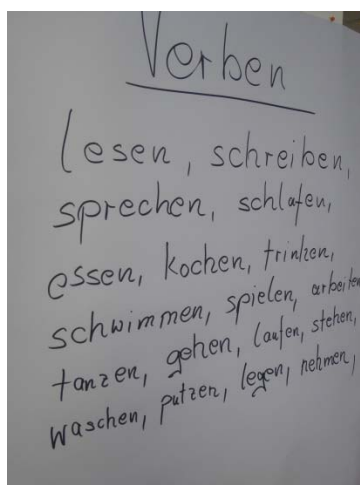 Verben
lesen, schreiben,
sprechen, schlafen,
essen, kochen, trinken,
schwimmen, spielen, arbeiten
tanzen, gehen, laufen, stehen,
waschen, putzen, legen, nehmen,